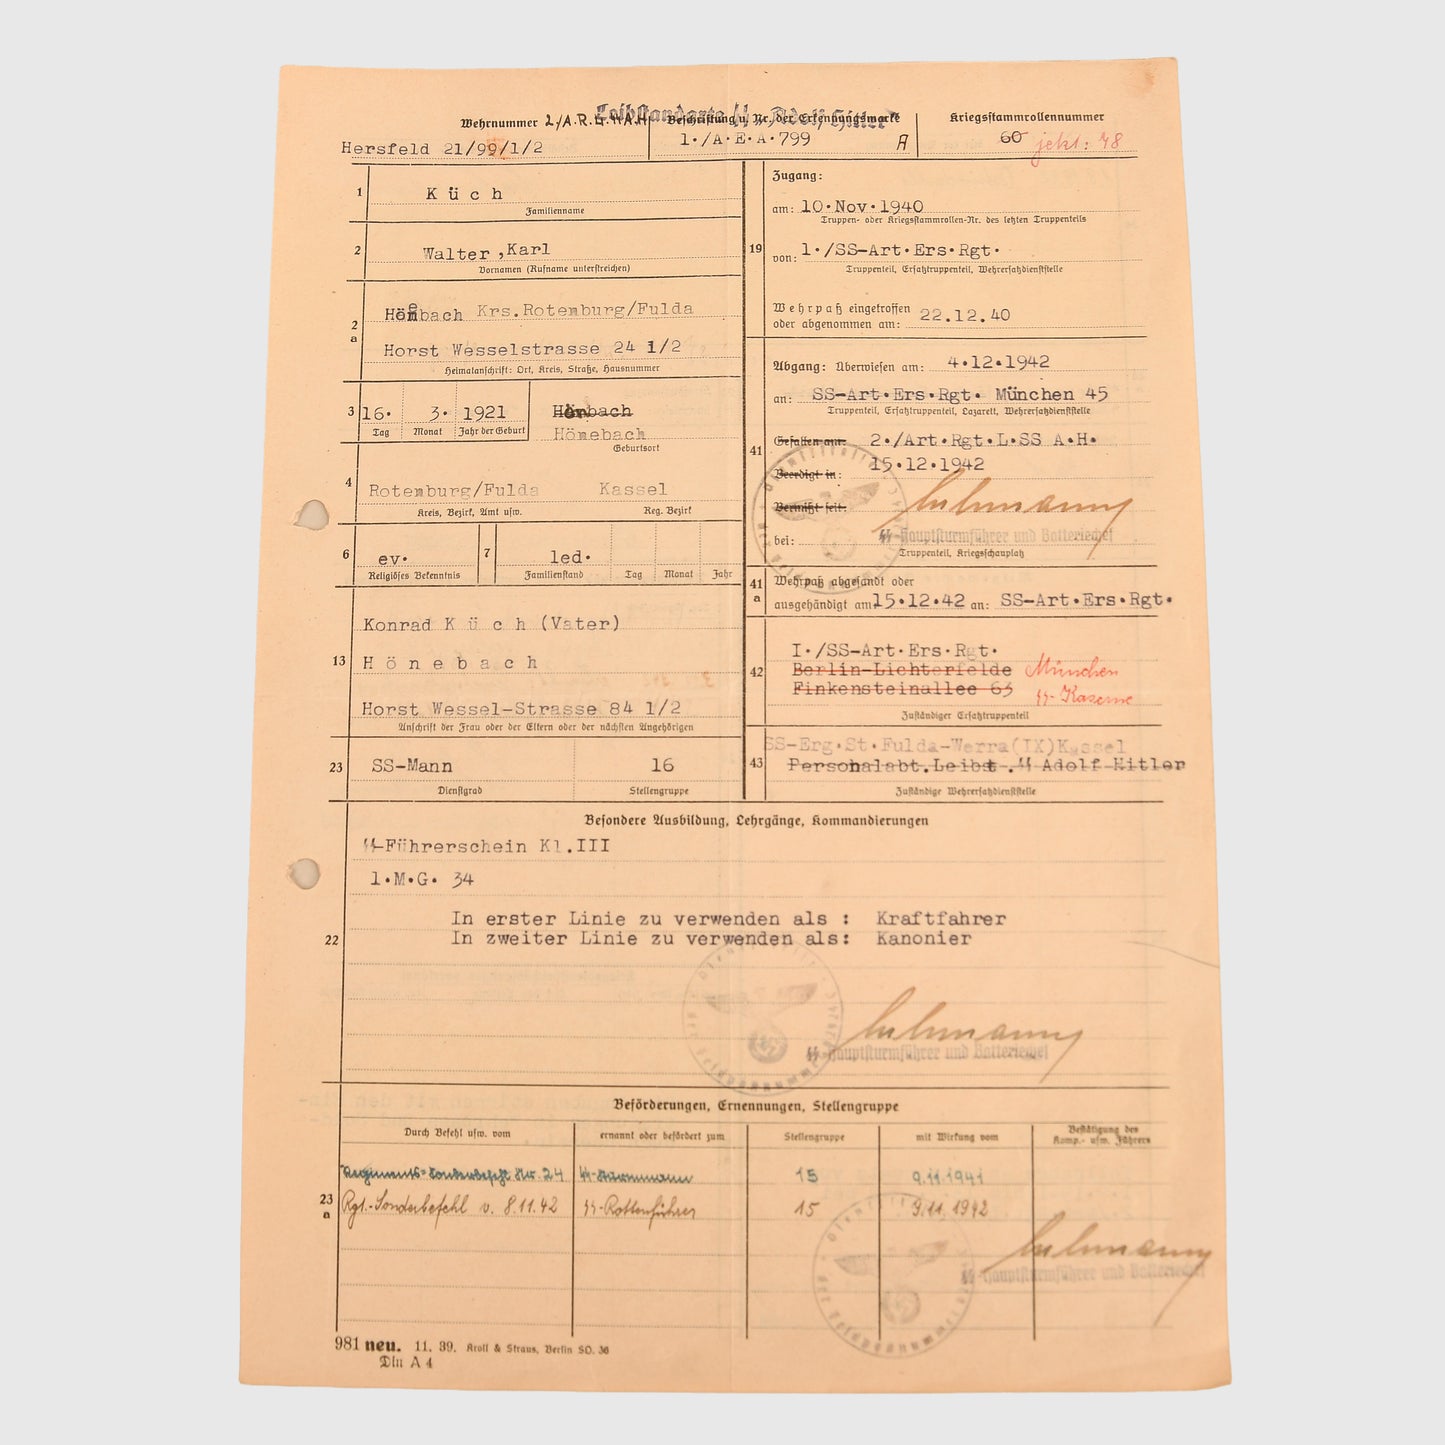 Leibstandarte SS „Adolf Hitler“
Wehrnummer 2/A.R.L.SS.A.H.
Beschriftung u. Nr. der Erkennungsmarke
Kriegsstammrollennummer
Hersfeld 21/99/1/2
1./A.E.A.799 A
60 jekt: 48
1
Küch
Familienname
2
Walter, Karl
Vornamen (Rufname unterstreichen)
2a
Hönebach Krs. Rotemburg/Fulda
Horst Wesselstrasse 24 1/2
Heimatanschrift: Ort, Kreis, Straße, Hausnummer
3
16. 3. 1921
Tag Monat Jahr der Geburt
Hönebach
Geburtsort
4
Rotemburg/Fulda Kassel
Kreis, Bezirk, Amt usw. Reg. Bezirk
6
ev.
Religiöses Bekenntnis
7
led.
Familienstand Tag Monat Jahr
13
Konrad Küch (Vater)
Hönebach
Horst Wessel-Strasse 84 1/2
Anschrift der Frau oder der Eltern oder der nächsten Angehörigen
23
SS-Mann 16
Dienstgrad Stellengruppe
19
Zugang:
am: 10.Nov.1940
Truppen- oder Kriegsstammrollen-Nr. des letzten Truppenteils
von: 1./SS-Art.Ers.Rgt.
Truppenteil, Ersatztruppenteil, Wehrersatzdienststelle
Wehrpaß eingetroffen
oder abgenommen am: 22.12.40
41
Abgang: Überwiesen am: 4.12.1942
an: SS-Art.Ers.Rgt. München 45
Truppenteil, Ersatztruppenteil, Lazarett, Wehrersatzdienststelle
Gefallen am: 2./Art.Rgt.L.SS A.H.
Beerdigt in: 15.12.1942
Vermißt seit:
bei: SS-Hauptsturmführer und Batteriechef
Truppenteil, Kriegsschauplatz
41a
Wehrpaß abgesandt oder
ausgehändigt am 15.12.42 an: SS-Art.Ers.Rgt.
42
I./SS-Art.Ers.Rgt.
Berlin-Lichterfelde München
Finkensteinallee 63 SS-Kaserne
Zuständiger Ersatztruppenteil
43
SS-Erg.St.Fulda-Werra(IX)Kassel
Personalabt.Leibst.SS Adolf Hitler
Zuständige Wehrersatzdienststelle
Besondere Ausbildung, Lehrgänge, Kommandierungen
22
SS-Führerschein Kl.III
l.M.G. 34
In erster Linie zu verwenden als : Kraftfahrer
In zweiter Linie zu verwenden als: Kanonier
SS-Hauptsturmführer und Batteriechef
Beförderungen, Ernennungen, Stellengruppe
Durch Befehl usw. vom
ernannt oder befördert zum
Stellengruppe
mit Wirkung vom
Bestätigung des
Komp.- usw. Führers
23a
Regiments-Sonderbefehl Nr. 24 SS-Sturmmann 15 9.11.1941
Rgt.-Sonderbefehl v. 8.11.42 SS-Rottenführer 15 9.11.1942
SS-Hauptsturmführer und Batteriechef
981 neu. 11. 39. Kroll & Straus, Berlin SO. 36
Din A 4